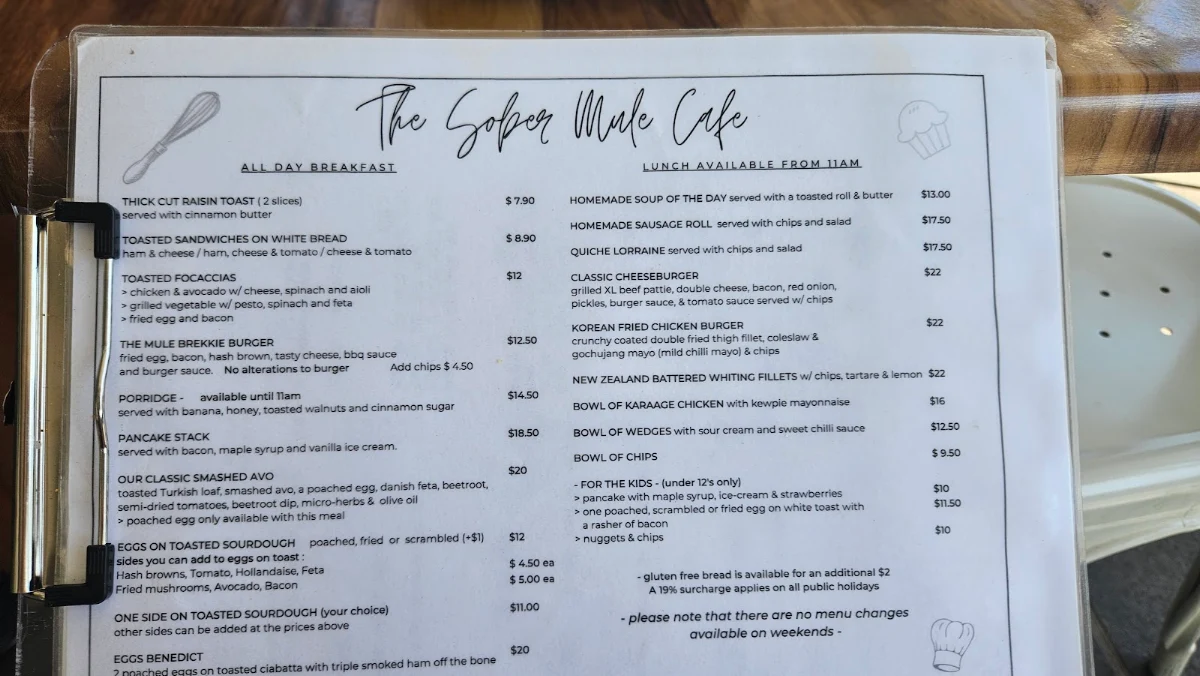 The Sober Mule Cafe
ALL DAY BREAKFAST
THICK CUT RAISIN TOAST ( 2 slices) $ 7.90
served with cinnamon butter
TOASTED SANDWICHES ON WHITE BREAD $ 8.90
ham & cheese / ham, cheese & tomato / cheese & tomato
TOASTED FOCACCIAS $12
> chicken & avocado w/ cheese, spinach and aioli
> grilled vegetable w/ pesto, spinach and feta
> fried egg and bacon
THE MULE BREKKIE BURGER $12.50
fried egg, bacon, hash brown, tasty cheese, bbq sauce
and burger sauce. No alterations to burger Add chips $ 4.50
PORRIDGE - available until 11am $14.50
served with banana, honey, toasted walnuts and cinnamon sugar
PANCAKE STACK $18.50
served with bacon, maple syrup and vanilla ice cream.
OUR CLASSIC SMASHED AVO $20
toasted Turkish loaf, smashed avo, a poached egg, danish feta, beetroot,
semi-dried tomatoes, beetroot dip, micro-herbs & olive oil
> poached egg only available with this meal
EGGS ON TOASTED SOURDOUGH poached, fried or scrambled (+$1) $12
sides you can add to eggs on toast :
Hash browns, Tomato, Hollandaise, Feta $ 4.50 ea
Fried mushrooms, Avocado, Bacon $ 5.00 ea
ONE SIDE ON TOASTED SOURDOUGH (your choice) $11.00
other sides can be added at the prices above
EGGS BENEDICT $20
2 poached eggs on toasted ciabatta with triple smoked ham off the bone
LUNCH AVAILABLE FROM 11AM
HOMEMADE SOUP OF THE DAY served with a toasted roll & butter $13.00
HOMEMADE SAUSAGE ROLL served with chips and salad $17.50
QUICHE LORRAINE served with chips and salad $17.50
CLASSIC CHEESEBURGER $22
grilled XL beef pattie, double cheese, bacon, red onion,
pickles, burger sauce, & tomato sauce served w/ chips
KOREAN FRIED CHICKEN BURGER $22
crunchy coated double fried thigh fillet, coleslaw &
gochujang mayo (mild chilli mayo) & chips
NEW ZEALAND BATTERED WHITING FILLETS w/ chips, tartare & lemon $22
BOWL OF KARAAGE CHICKEN with kewpie mayonnaise $16
BOWL OF WEDGES with sour cream and sweet chilli sauce $12.50
BOWL OF CHIPS $ 9.50
- FOR THE KIDS - (under 12's only)
> pancake with maple syrup, ice-cream & strawberries $10
> one poached, scrambled or fried egg on white toast with $11.50
a rasher of bacon
> nuggets & chips $10
- gluten free bread is available for an additional $2
A 19% surcharge applies on all public holidays
- please note that there are no menu changes
available on weekends -